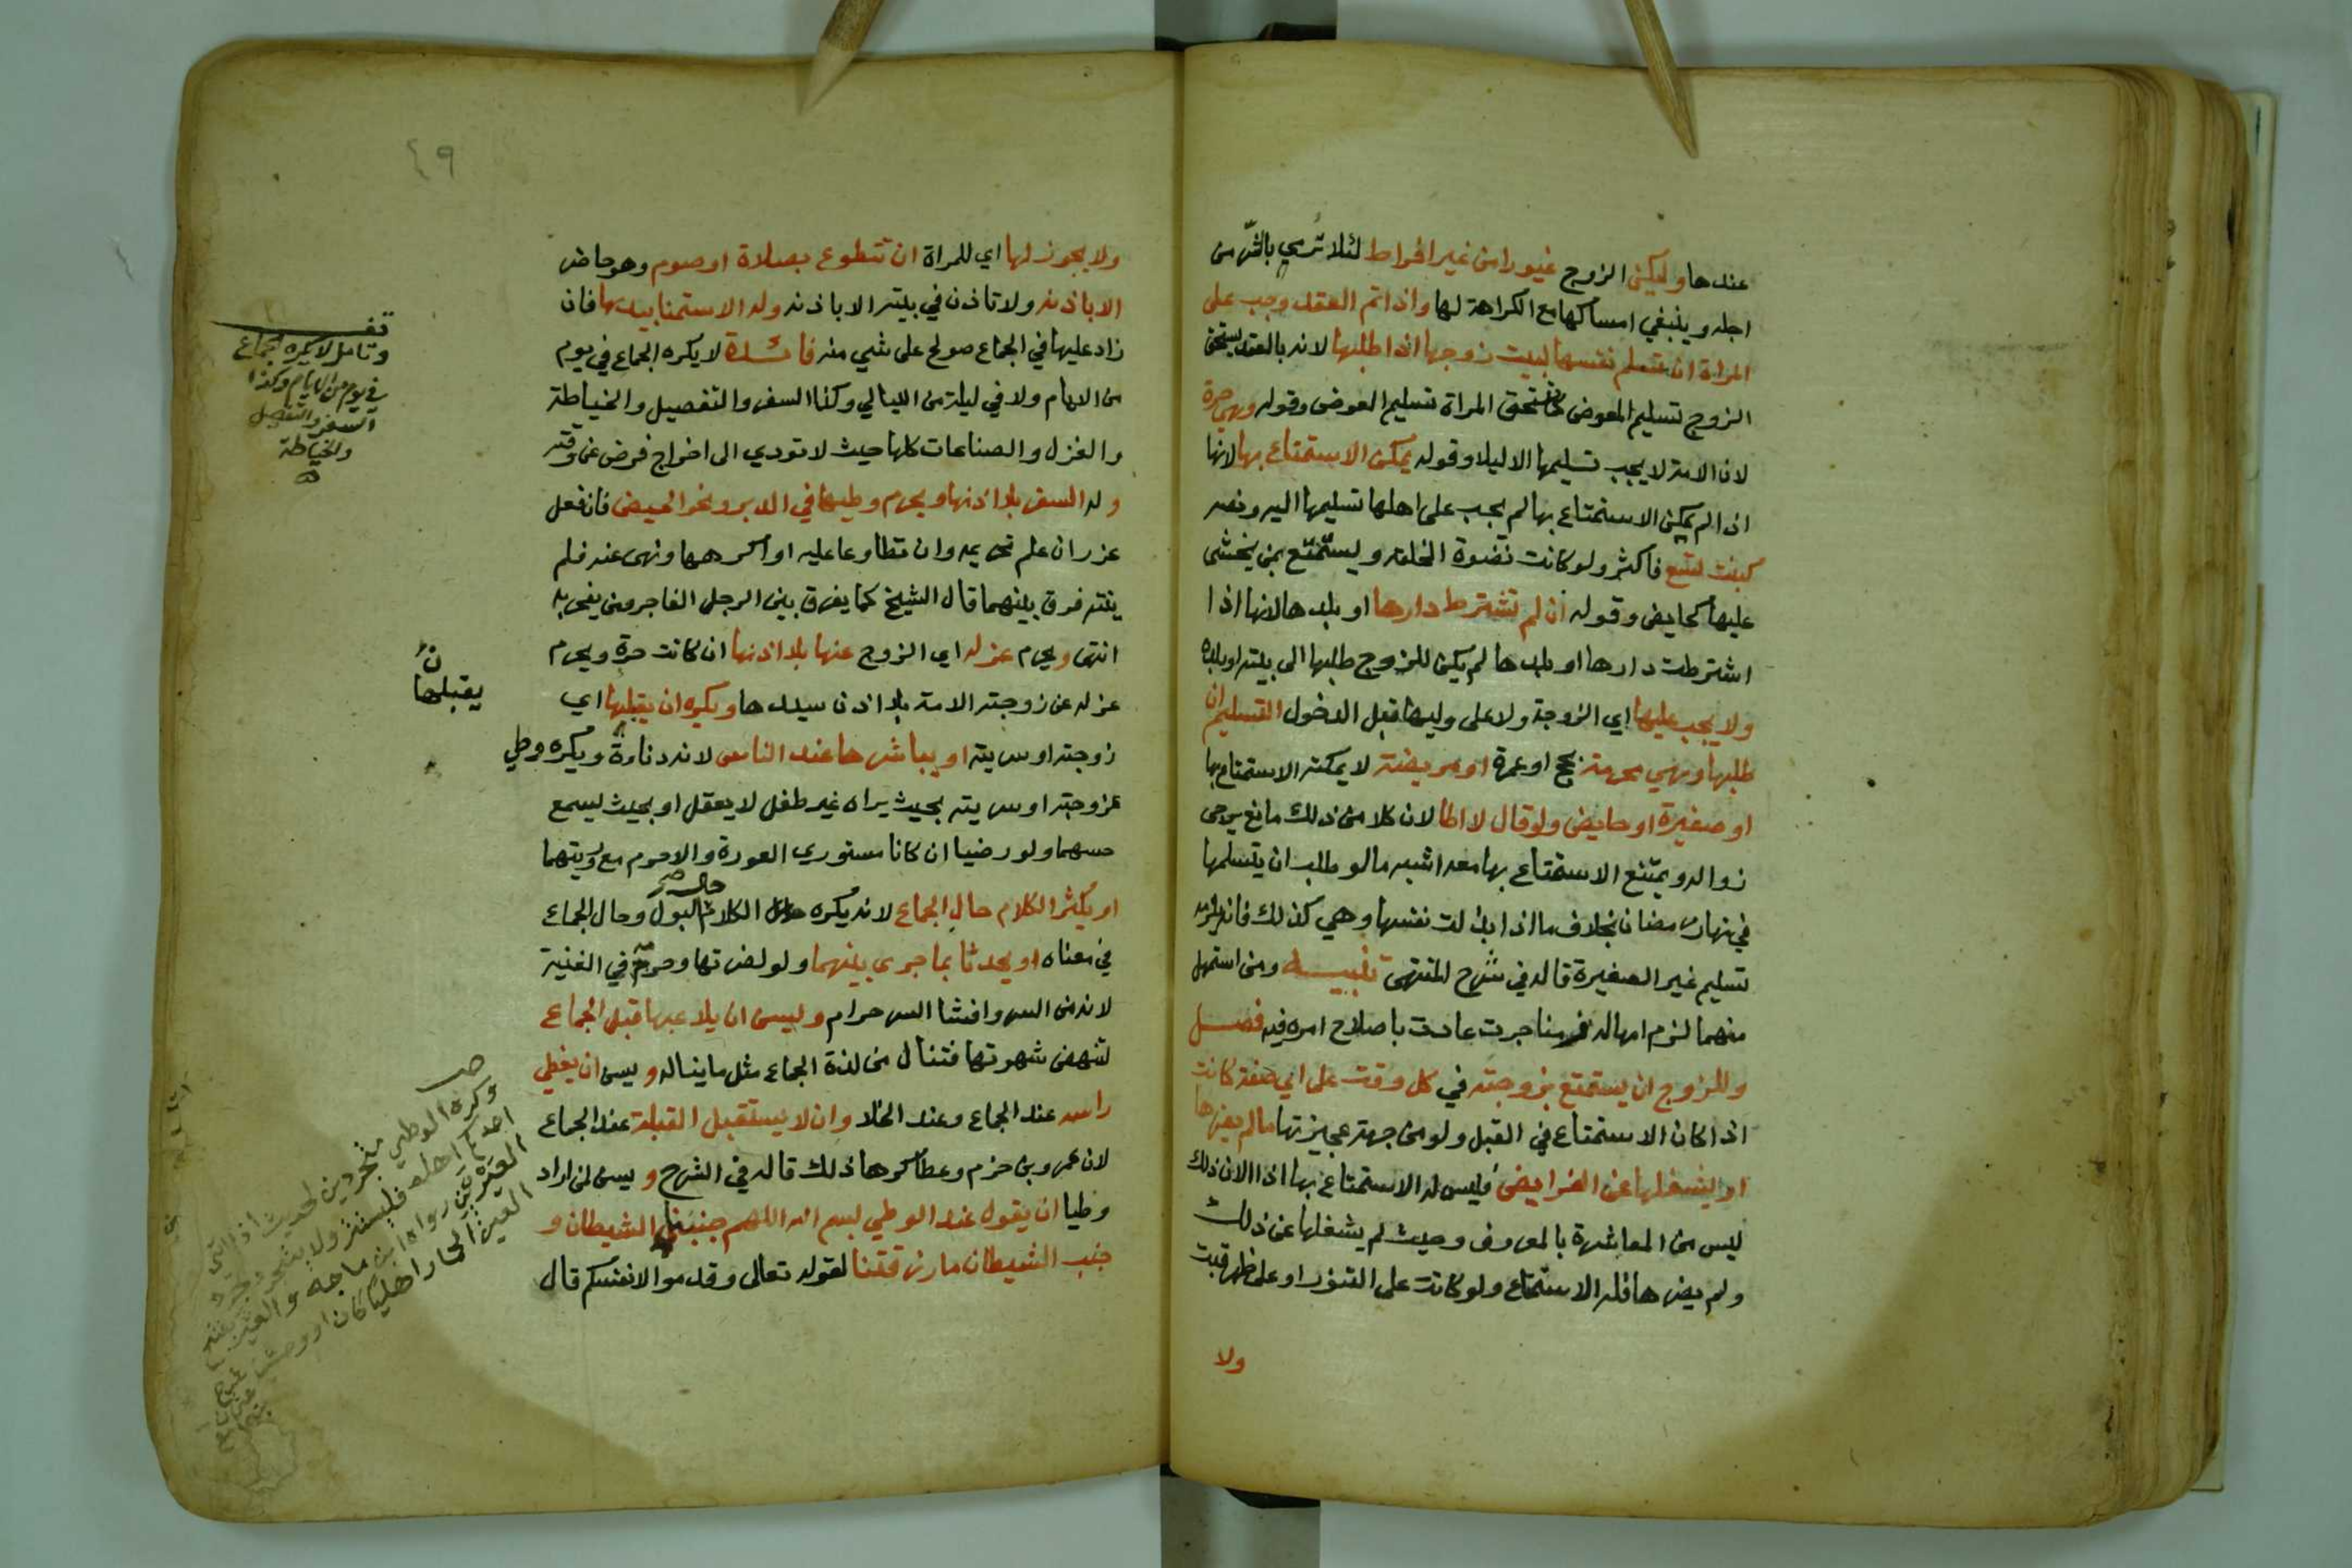 عندها وليكن الزوج غيورا من غير افراط لئلا ترمي بالشر من
اجله وينبغي امساكها مع الكراهة لها واذا تم العقد وجب على
المراة ان تسلم نفسها لبيت زوجها اذا طلبها لانه بالعقد يستحق
الزوج تسليم المعوض كما تستحق المراة تسليم العوض وقوله وهي حرة
لان الامة لا يجب تسليمها الا ليلا وقوله يمكن الاستمتاع بها لانها
اذا لم يمكن الاستمتاع بها لم يجب على اهلها تسليمها اليه ونصه
كبنت تسع فاكثر ولو كانت نضوة الخلقه ويستمتع بمن يخشى
عليها كحايض وقوله ان لم تشترط دارها او بلدها لانها اذا
اشترطت دارها او بلدها لم يكن للزوج طلبها الى بيته او بلده
ولا يجب عليها اي الزوجة ولا على وليها قبل الدخول التسليم ان
طلبها وهي محرمة بحج او عمرة او مريضة لا يمكنه الاستمتاع بها
او صغيرة او حايض ولو قال لا اطا لان كلا من ذلك مانع يرجى
زواله ويمتنع الاستمتاع بها معه اشبه ما لو طلب ان يتسلمها
في نهار رمضان بخلاف ما اذا بذلت نفسها وهي كذلك فانه يلزمه
تسليم غير الصغيرة قاله في شرح المنتهى تنبيه ومن استمهل
منهما لزم امهاله زمنا جرت عادت باصلاح امره فيه فصل
وللزوج ان يستمتع بزوجته في كل وقت على اي صفة كانت
اذا كان الاستمتاع في القبل ولو من جهة عجيزتها ما لم يضرها
او يشغلها عن الفرايض فليس له الاستمتاع بها اذا لان ذلك
ليس من المعاشرة بالمعروف وحيث لم يشغلها عن ذلك
ولم يضرها فله الاستمتاع ولو كانت على التنور او على ظهر قتب
ولا
٤٩
ولا يجوز لها اي للمراة ان تتطوع بصلاة او صوم وهو حاضر
الا باذنه ولا تاذن في بيته الا باذنه وله الاستمنا بيدها فان
زاد عليها في الجماع صولح على شي منه فائدة لا يكره الجماع في يوم
من الايام ولا في ليلة من الليالي وكذا السفر والتفصيل والخياطة
والغزل والصناعات كلها حيث لا تودي الى اخراج فرض عن وقته
وله السفر بلا اذنها ويحرم وطيها في الدبر ونحو الحيض فان فعل
عزر ان علم تحريمه وان تطاوعا عليه او اكرهها ونهى عنه فلم
ينته فرق بينهما قال الشيخ كما يفرق بين الرجل الفاجر ومن يفجر به
انتهى ويحرم عزله اي الزوج عنها بلا اذنها ان كانت حرة ويحرم
عزله عن زوجته الامة بلا اذن سيدها ويكره ان يقبلها اي
زوجته او سريته او يباشرها عند الناس لانه دناءة ويكره وطي
زوجته او سريته بحيث يراه غير طفل لا يعقل او بحيث يسمع
حسهما ولو رضيا ان كانا مستوري العورة والا حرم مع رويتهما
او يكثر الكلام حال الجماع لانه يكره الكلام حال البول وحال الجماع
في معناه او يحدثا بما جرى بينهما ولو لضرتها وحرمه في الغنية
لانه من السر وافشا السر حرام ويسن ان يلاعبها قبل الجماع
لتنهض شهوتها فتنال من لذة الجماع مثل ما يناله ويسن ان يغطي
راسه عند الجماع وعند الخلا وان لا يستقبل القبلة عند الجماع
لان عمرو بن حزم وعطا كرها ذلك قاله في الشرح ويسن لمن اراد
وطيا ان يقول عند الوطي بسم الله اللهم جنبنا الشيطان و
جنب الشيطان ما رزقتنا لقوله تعالى وقدموا لانفسكم قال
قف
وتامل لا يكره الجماع
في يوم من الايام وكذا
السفر والتفصيل
والخياطة
يقبلها
وكره الوطي متجردين لحديث اذا اتى
احدكم اهله فليستتر ولا يتجرد تجرد
العيرين رواه ابن ماجه والعير بفتح
العين الحمار اهليا كان او وحشيا